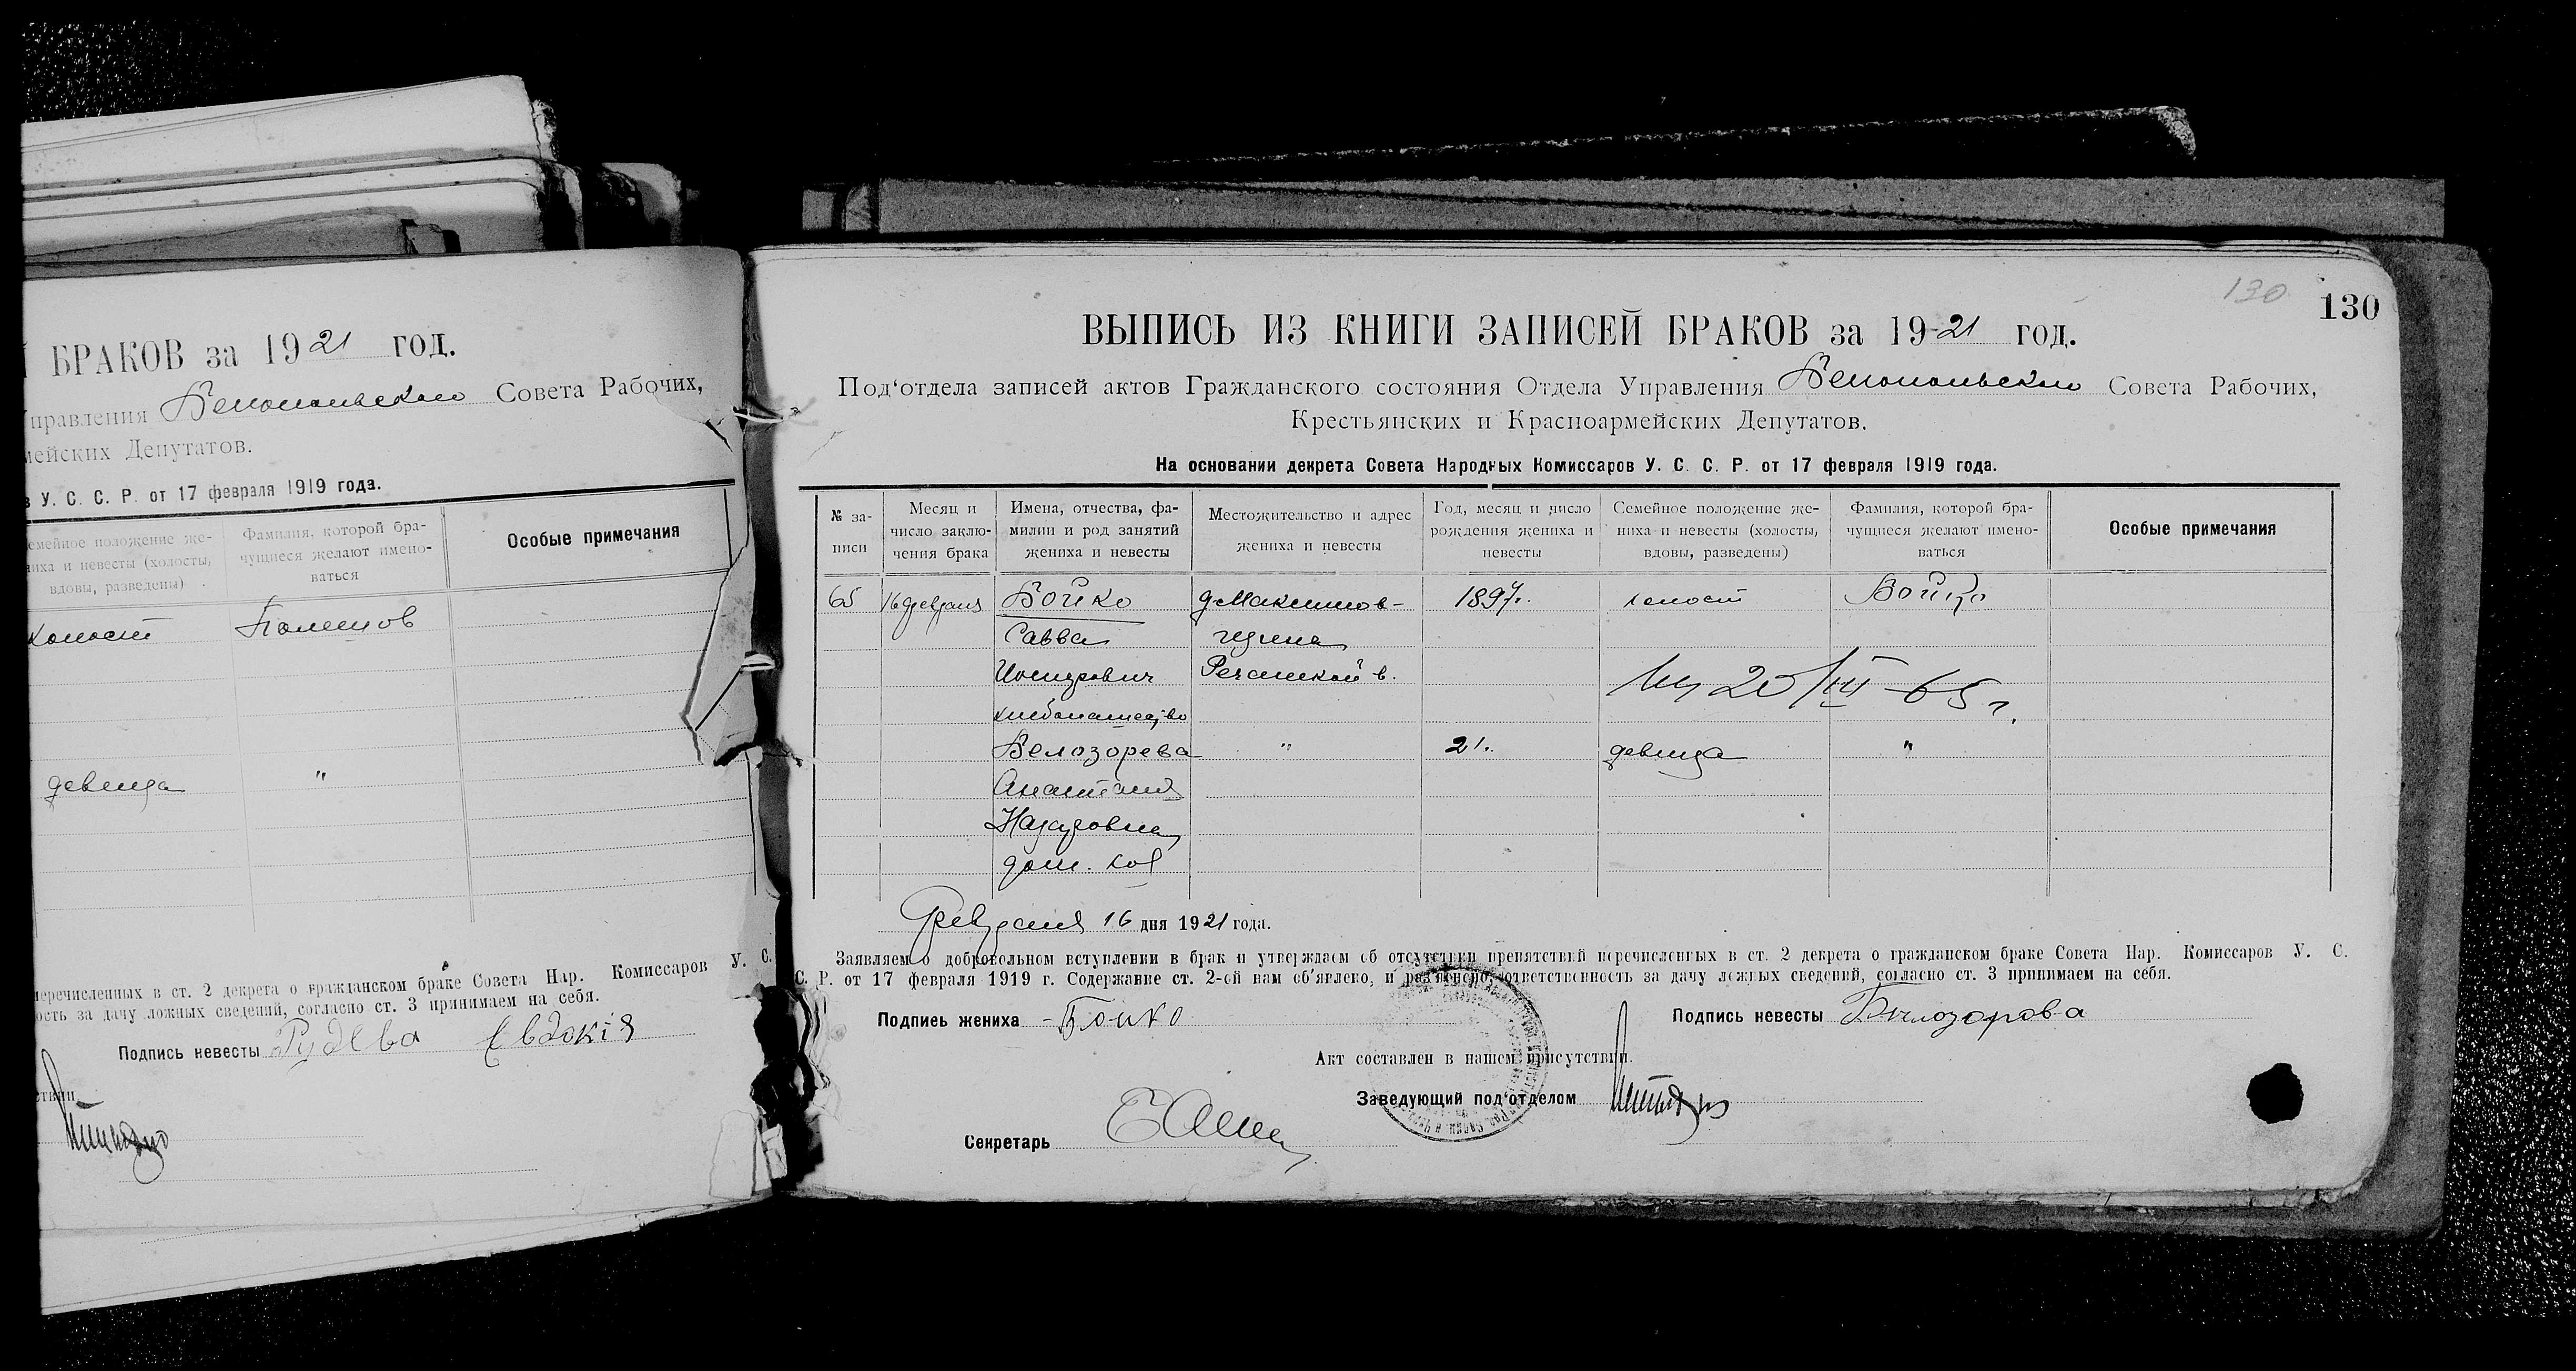 БРАКОВ за 1921 год.
Управления Белопольского Совета Рабочих,
мейских Депутатов.
в У. С. С. Р. от 17 февраля 1919 года.
Семейное положение же-
ниха и невесты (холосты,
вдовы, разведены)
Фамилия, которой бра-
чущиеся желают имено-
ваться
Особые примечания
холост
девица
"
перечисленных в ст. 2 декрета о гражданском браке Совета Нар. Комиссаров У. С.
ость за дачу ложных сведений, согласно ст. 3 принимаем на себя.
Подпись невесты Рудева Евдокія
ствии
130
130
ВЫПИСЬ ИЗ КНИГИ ЗАПИСЕЙ БРАКОВ за 1921 год.
Под'отдела записей актов Гражданского состояния Отдела Управления Белопольского Совета Рабочих,
Крестьянских и Красноармейских Депутатов.
На основании декрета Совета Народных Комиссаров У. С. С. Р. от 17 февраля 1919 года.
№ за-
писи
Месяц и
число заклю-
чения брака
Имена, отчества, фа-
милии и род занятий
жениха и невесты
Местожительство и адрес
жениха и невесты
Год, месяц и число
рождения жениха и
невесты
Семейное положение же-
ниха и невесты (холосты,
вдовы, разведены)
Фамилия, которой бра-
чущиеся желают имено-
ваться
Особые примечания
65 16 февраля Бойко д. Максимов- 1897 г. холост Бойко
Савва щина
Иосифович Речанской в.
20/III-65 г.
хлебопашество
Белозорева " 21 г. девица "
Анастасия
Назаровна
дом. хоз
Февраля 16 дня 1921 года.
Заявляем о добровольном вступлении в брак и утверждаем об отсутствии препятствий перечисленных в ст. 2 декрета о гражданском браке Совета Нар. Комиссаров У. С.
С. Р. от 17 февраля 1919 г. Содержание ст. 2-ой нам об'явлено, и раз'яснено, ответственность за дачу ложных сведений, согласно ст. 3 принимаем на себя.
Подпись жениха Бойко
Подпись невесты Білозорова
Акт составлен в нашем присутствии.
Заведующий под'отделом
Секретарь